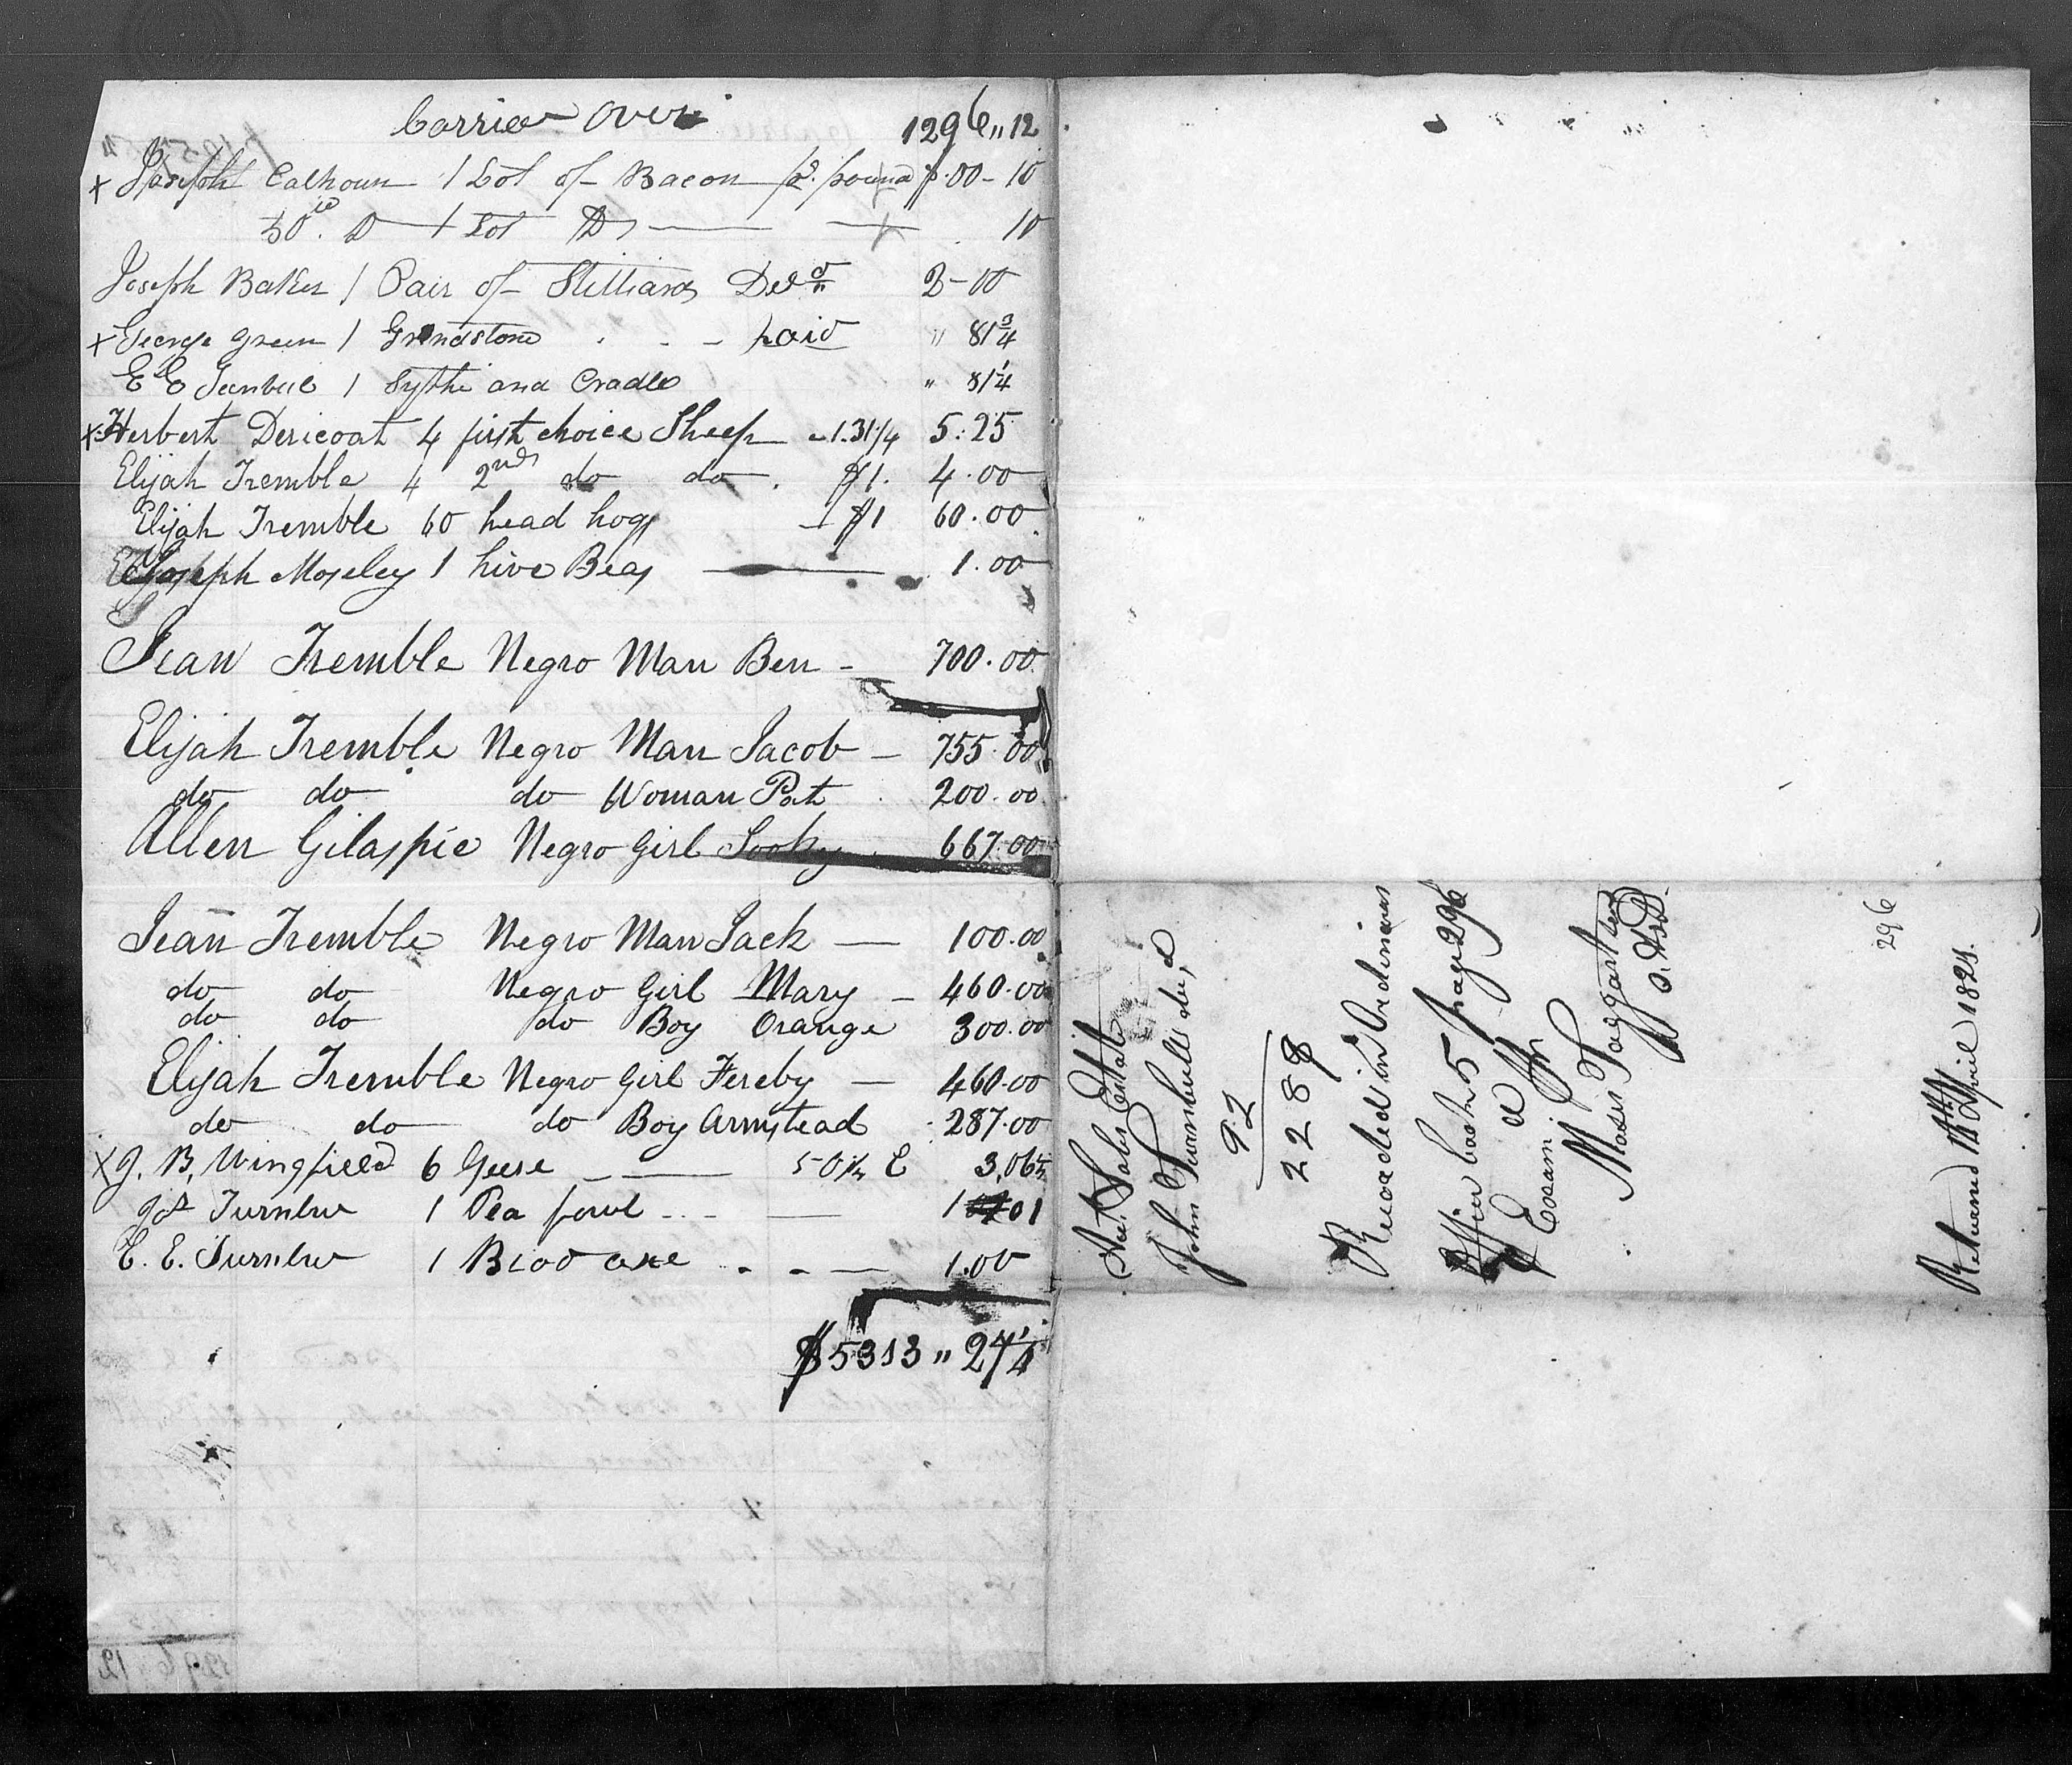 Carried over 1296 " 12
x Joseph Calhoun 1 Lot of Bacon pr. pound $.00 - 10
Do. D 1 Lot D 10
Joseph Baker 1 Pair of Stilliards 2-00
x George Green 1 Grindstone - - - paid " 81 3/4
E E 1 Sythe and Cradle " 81 1/4
x Herbert Dericoat 4 first choice Sheep - 1.31 1/4 5.25
Elijah Tremble 4 2nd do do . $1. 4.00
Elijah Tremble 60 head hogs - $1 60.00
Joseph Moseley 1 hive Bees 1.00
Jean Tremble Negro Man Ben - 700.00
Elijah Tremble Negro Man Jacob - 755.00
do do do Woman Pat 200.00
Allen Gilaspie Negro Girl Sooky 667.00
Jean Tremble Negro Man Jack - 100.00
do do Negro Girl Mary - 460.00
do do do Boy Orange 300.00
Elijah Tremble Negro Girl Fereby - 460.00
do do do Boy Armstead 287.00
x J. B. Wingfield 6 Geese 3.06
1 Pea fowl 1 01
E. E. 1 Broad axe 1.00
$5313 " 27 1/4
Estate
John Turnbull
92
228
Recorded in Ordinarus
Office book 5 page 296
Exam
Moses Taggart
O. A. D.
296
Returned April 182